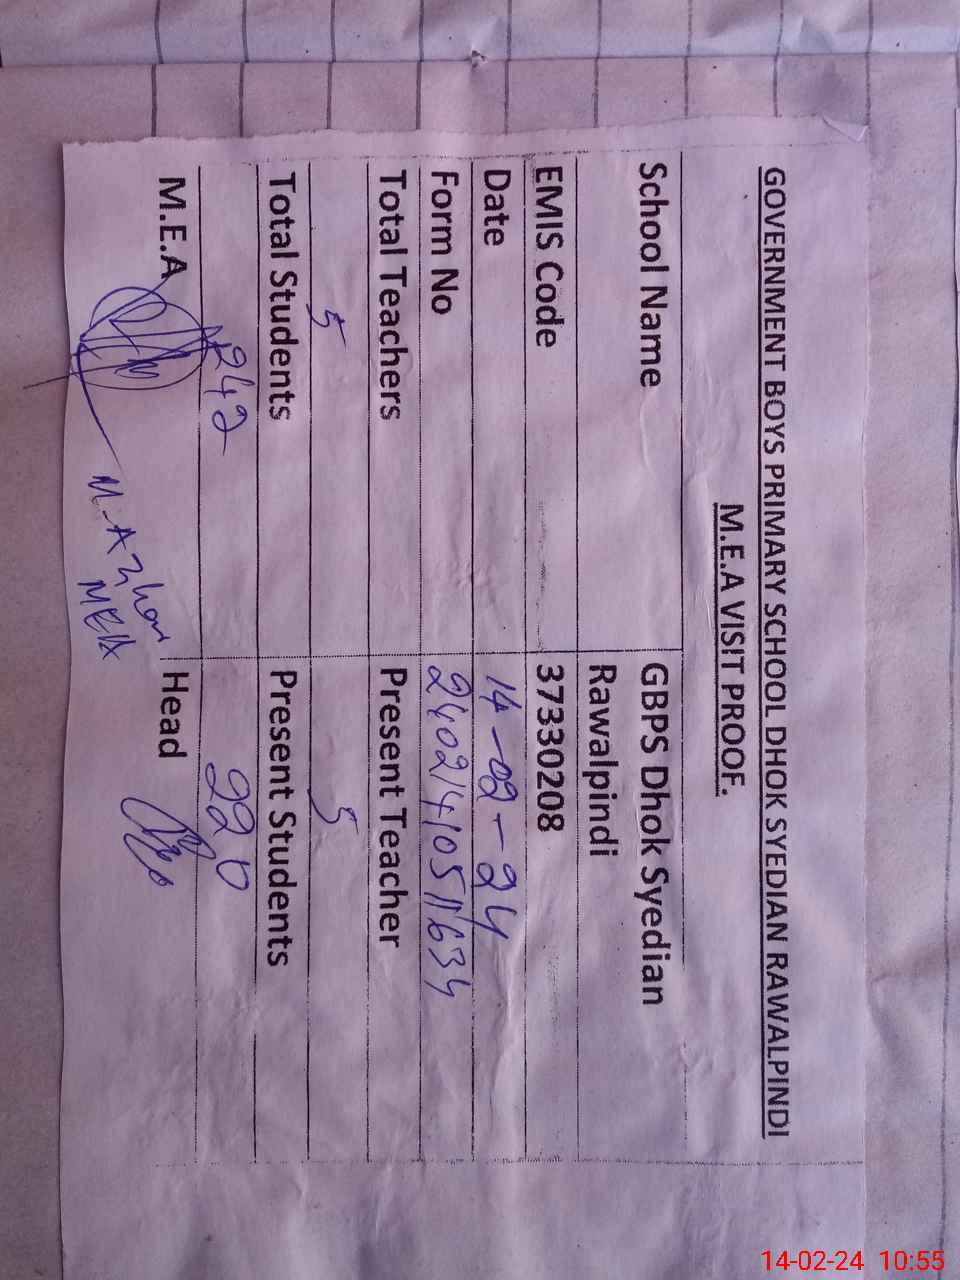 GOVERNMENT BOYS PRIMARY SCHOOL DHOK SYEDIAN RAWALPINDI
M.E.A VISIT PROOF.
School Name GBPS Dhok Syedian
Rawalpindi
EMIS Code 37330208
Date 14-02-24
Form No 24021410511634
Total Teachers Present Teacher
5 5
Total Students Present Students
242 220
M.E.A Head
M. Azhar
MEA
14-02-24 10:55